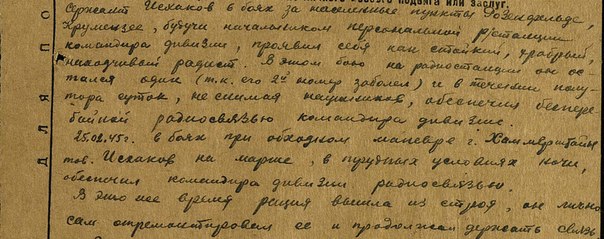 боевого подвига или заслуг.
Сержант Исхаков в боях за населенные пункты Розендфельде,
Крумензее, будучи начальником персональной р/станции
командира дивизии, проявил себя как стойкий, храбрый,
находчивый радист. В этом бою на радиостанции он ос-
тался один (т.к. его 2й номер заболел) и в течении полу-
тора суток, не снимая наушников, обеспечил беспере-
бойной радиосвязью командира дивизии.
25.02.45г. в боях при обходном маневре г. Хаммерштайн
тов. Исхаков на марше, в трудных условиях ночи,
обеспечил командира дивизии радиосвязью.
В это же время рация вышла из строя, он лично
сам отремонтировал ее и продолжал держать связь
ДЛЯ ПО